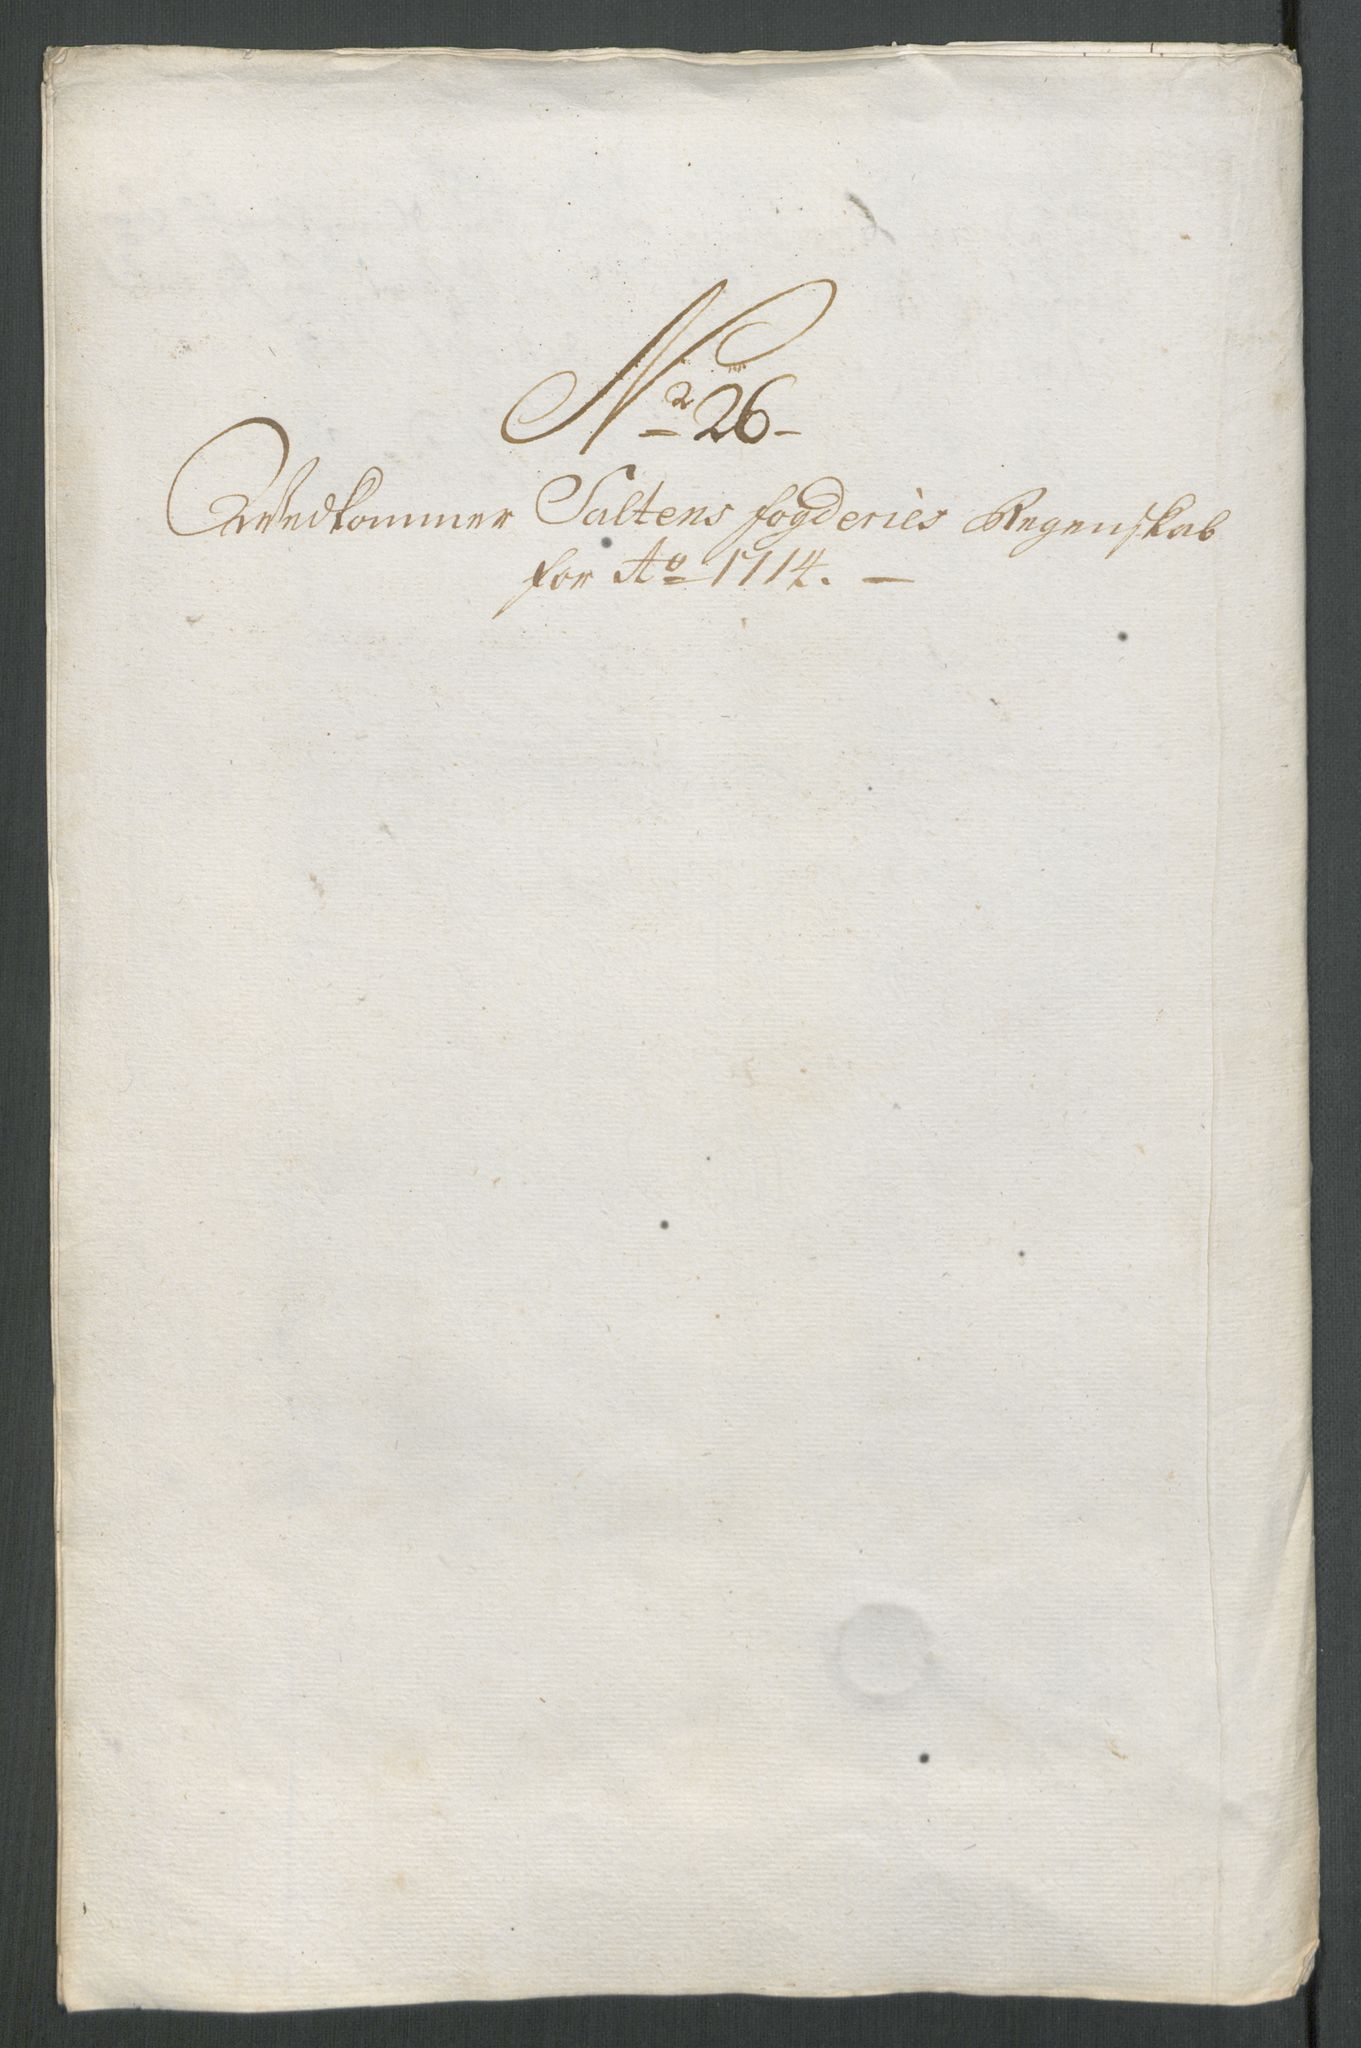 No 26
Vedkommer Saltens fogderies Regenskab
for Ao 1714.